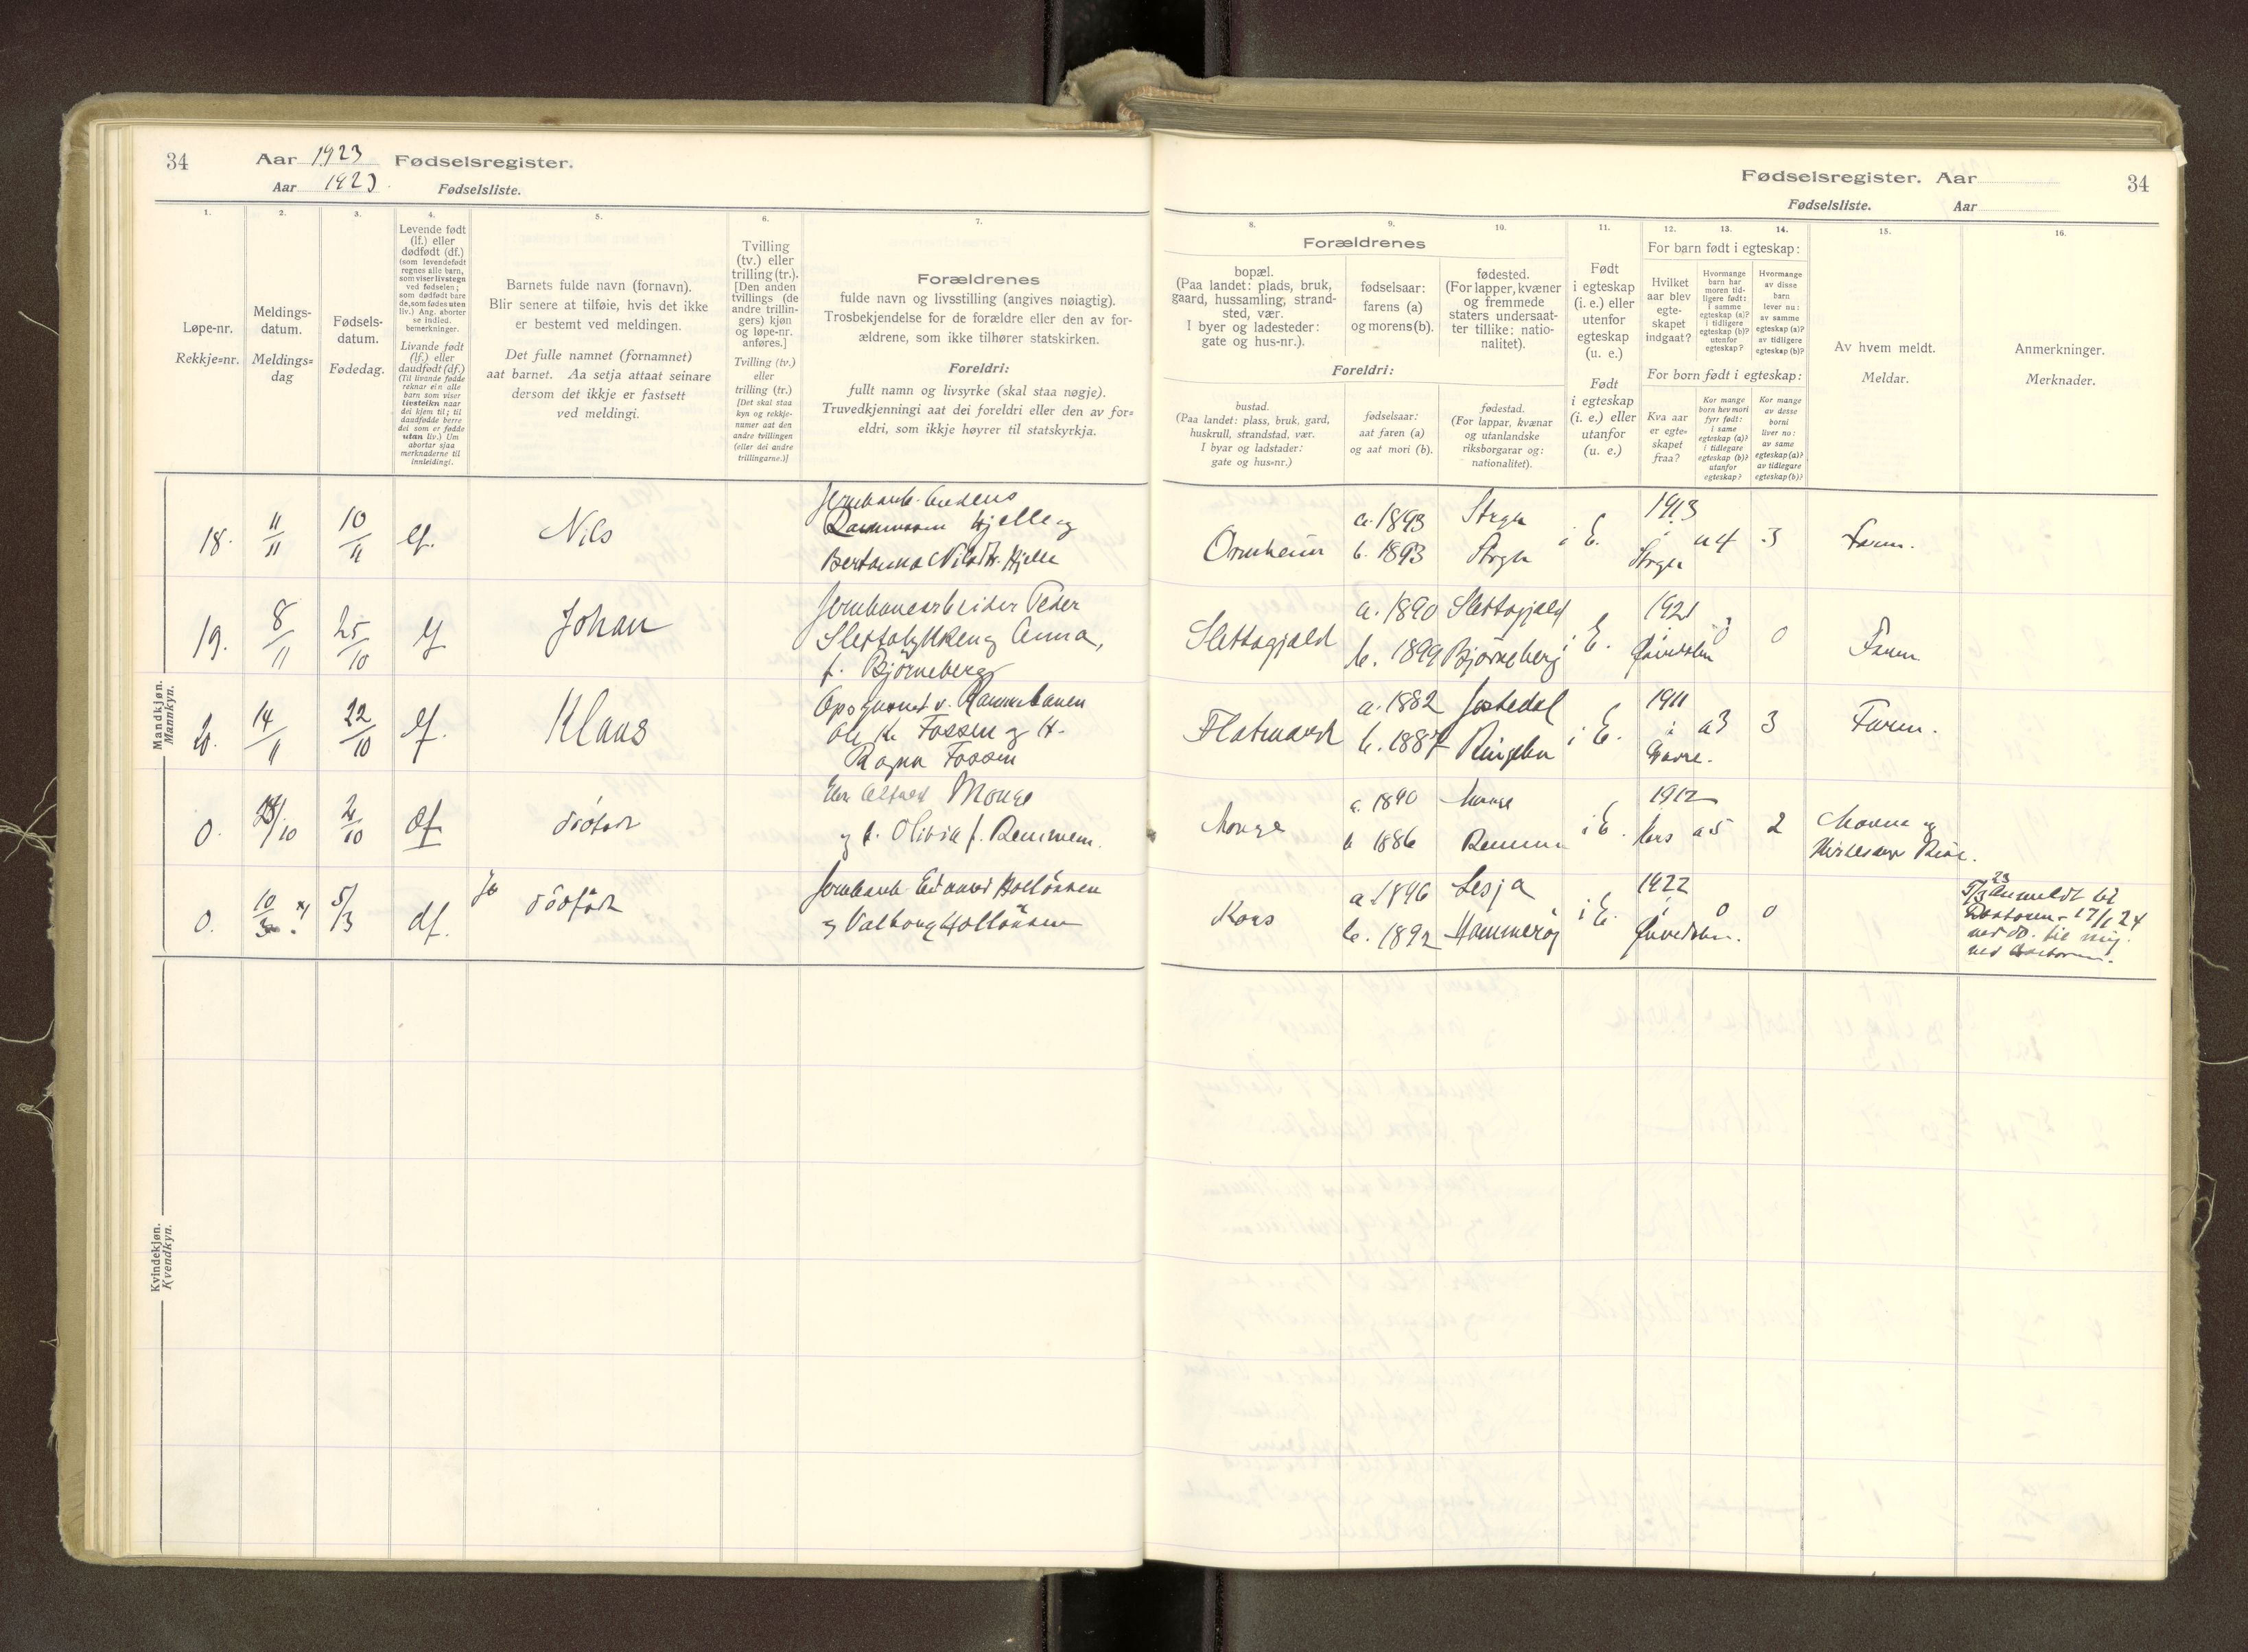 34
Aar 1923 Fødselsregister.
Aar 1923 Fødselsliste.
1.
2.
3.
4.
5.
6.
7.
Løpe-nr.
Rekkje=nr.
Meldings-
datum.
Meldings=
dag
Fødsels-
datum.
Fødedag.
Levende født
(lf.) eller
dødfødt (df.)
(som levendefødt
regnes alle barn,
som viser livstegn
ved fødselen;
som dødfødt bare
de, som fødes uten
liv.) Ang. aborter
se indled.
bemerkninger.
Livande født
(lf.) eller
daudfødt (df.)
(Til livande fødde
reknar ein alle
barn som viser
livsteikn naar
dei kjem til; til
daudfødde berre
dei som er fødde
utan liv.) Um
abortar sjaa
merknaderne til
innleidingi.
Barnets fulde navn (fornavn).
Blir senere at tilføie, hvis det ikke
er bestemt ved meldingen.
Det fulle namnet (fornamnet)
aat barnet. Aa setja attaat seinare
dersom det ikkje er fastsett
ved meldingi.
Tvilling
(tv.) eller
trilling (tr.).
[Den anden
tvillings (de
andre trillin-
gers) kjøn
og løpe-nr.
anføres.]
Tvilling (tv.)
eller
trilling (tr.)
[Det skal staa
kyn og rekkje-
numer aat den
andre tvillingen
(eller dei andre
trillingarne.)]
Forældrenes
fulde navn og livsstilling (angives nøiagtig).
Trosbekjendelse for de forældre eller den av for-
ældrene, som ikke tilhører statskirken.
Foreldri:
fullt namn og livsyrke (skal staa nøgje).
Truvedkjenningi aat dei foreldri eller den av for=
eldri, som ikkje høyrer til statskyrkja.
Mandkjøn.
Mannkyn.
18. 11/11 10/11 lf. Nils
Rasmussen Hjelle og
Bertanna Hjelle
19. 8/11 25/10 lf Johan
Jernbanearbeider Peder
Anna,
f. Bjørneberg
20. 14/11 22/10 lf. Klaus
Opsynsmd v. Raumabanen
Ole K. Fossen og H.
Ragna Fossen
0. /10 2/10 df dødfødt
Alfred Monge
og h. Olivia f. Remmem.
0. 10/3 5/3 df. dødfødt
Jernbanearb. Edvard
og Valborg
Kvindekjøn.
Kvendkyn.
Fødselsregister. Aar
34
Fødselsliste. Aar
8.
9.
10.
11.
12.
13.
14.
15.
16.
Forældrenes
bopæl.
(Paa landet: plads, bruk,
gaard, hussamling, strand-
sted, vær.
I byer og ladesteder:
gate og hus-nr.).
fødselsaar:
farens (a)
og morens (b).
fødested.
(For lapper, kvæner
og fremmede
staters undersaat-
ter tillike: natio-
nalitet).
Foreldri:
bustad.
(Paa landet: plass, bruk, gard,
huskrull, strandstad, vær.
I byar og ladstader:
gate og hus=nr.)
fødselsaar:
aat faren (a)
og aat mori (b).
fødestad.
(For lappar, kvænar
og utanlandske
riksborgarar og:
nationalitet).
Født
i egteskap
(i. e.) eller
utenfor
egteskap
(u. e.)
Født
i egteskap
(i. e.) eller
utanfor
(u. e.)
For barn født i egteskap:
Hvilket
aar blev
egte-
skapet
indgaat?
Hvormange
barn har
moren tid-
ligere født:
i samme
egteskap (a)?
i tidligere
egteskap (b)?
utenfor
egteskap?
Hvormange
av disse
barn
lever nu:
av samme
egteskap (a)?
av tidligere
egteskap (b)?
For born født i egteskap:
Kva aar
er egte=
skapet
fraa?
Kor mange
born hev mori
fyrr født:
i same
egteskap (a)?
i tidlegare
egteskap (b)?
utanfor
egteskap?
Kor mange
av desse
borni
liver no:
av same
egteskap (a)?
av tidlegare
egteskap (b)?
Av hvem meldt.
Meldar.
Anmerkninger.
Merknader.
Ormheim a. 1893 Stryn i E. 1913 a4 3 Faren.
b. 1893 Stryn i Stryn
Slettagjeld a. 1890 Slettagjeld i E. 1921 0 0 Faren
b. 1899 Bjørneberg
Flatmark a. 1882 Jostedal i E. 1911 a3 3 Faren.
b. 1887 Ringebu i
Monge a. 1890 Monge i E. 1912 a5 2
b 1886 Remmem Kors
Kors a. 1896 Lesja i E. 1922 0 0
b. 1892 Hammerøy i
5/3 23 Anmeldt til
Doktoren - 17/1 24
til mig.